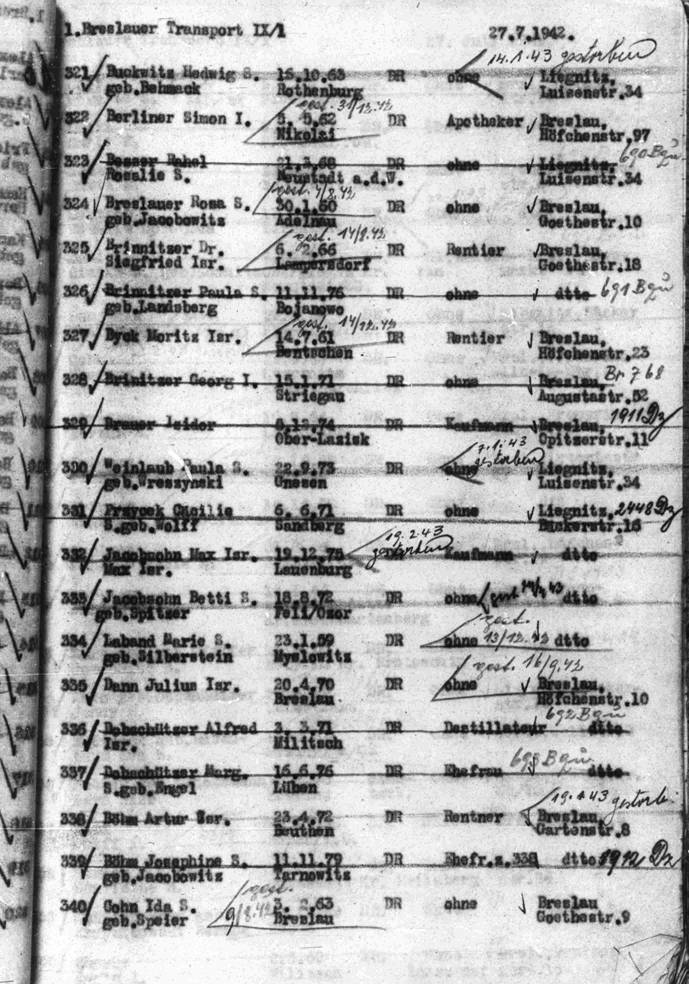 1.Breslauer Transport IX/1 27.7.1942.
14.1.43 gestorben
321 Buckwitz Hedwig S. 15.10.63 DR ohne Liegnitz,
geb.Behmack Rothenburg Luisenstr.34
gest. 31/12.42
322 Berliner Simon I. 5. 5.62 DR Apotheker Breslau,
Nikolai Höfchenstr.97
690 Bqu
323 Besser Rahel 21.3.68 DR ohne Liegnitz,
Rosalie S. Neustadt a.d.W. Luisenstr.34
gest. 4/8.42
324 Breslauer Rosa S. 30.1.60 DR ohne Breslau,
geb.Jacobowitz Adelnau Goethestr.10
gest. 14/8.42
325 Brinnitzer Dr. 6. 2.66 DR Rentier Breslau,
Siegfried Isr. Lampersdorf Goethestr.18
326 Brinnitzer Paula S. 11.11.76 DR ohne dtto 691 Bqu
geb.Landsberg Bojanowo
gest. 14/12.42
327 Byck Moritz Isr. 14.7.61 DR Rentier Breslau,
Bentschen Höfchenstr.23
328 Brinitzer Georg I. 15.1.71 DR ohne Breslau, Br 768
Striegau Augustastr.52
329 Brauer Isidor 8.12.74 DR Kaufmann Breslau, 1911 Dz
Ober-Lazisk Opitzerstr.11
7.1.43
gestorben
330 Weinlaub Paula S. 22.9.73 DR ohne Liegnitz,
geb.Wreszynski Gnesen Luisenstr.34
331 Przycek Cäcilie 6. 6.71 DR ohne Liegnitz, 2448 Dz
S.geb.Wolff Sandberg Bäckerstr.16
19.2.43
gestorben
332 Jacobsohn Max Isr. 19.12.75 DR Kaufmann dtto
Max Isr. Lauenburg
333 Jacobsohn Betti S. 18.8.72 DR ohne gest. 43 dtto
geb.Spitzer Feli/Csor
gest.
334 Laband Marie S. 23.1.59 DR ohne 13/12.42 dtto
geb.Silberstein Myslowitz
gest. 16/9.42
335 Dann Julius Isr. 20.4.70 DR ohne Breslau,
Breslau Höfchenstr.10
692 Bqu
336 Dobschützer Alfred 3. 3.71 DR Destillateur dtto
Isr. Militsch
693 Bqu
337 Dobschützer Marg. 16.6.76 DR Ehefrau dtto
S.geb.Engel Lüben
43 gestorb.
338 Böhm Artur Isr. 23.4.72 DR Rentner Breslau,
Beuthen Gartenstr.8
339 Böhm Josephine S. 11.11.79 DR Ehefr.z.338 dtto 1912 Dz
geb.Jacobowitz Tarnowitz
gest.
340 Cohn Ida S. 9/8.42 3. 2.63 DR ohne Breslau
geb.Speier Breslau Goethestr.9